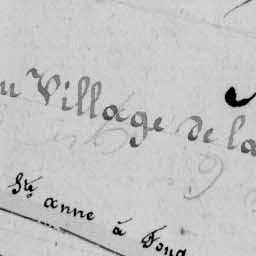 u Village de la
Ste anne à Foug